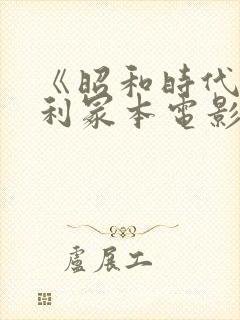 《昭和時代
利冢本電影
盧展工